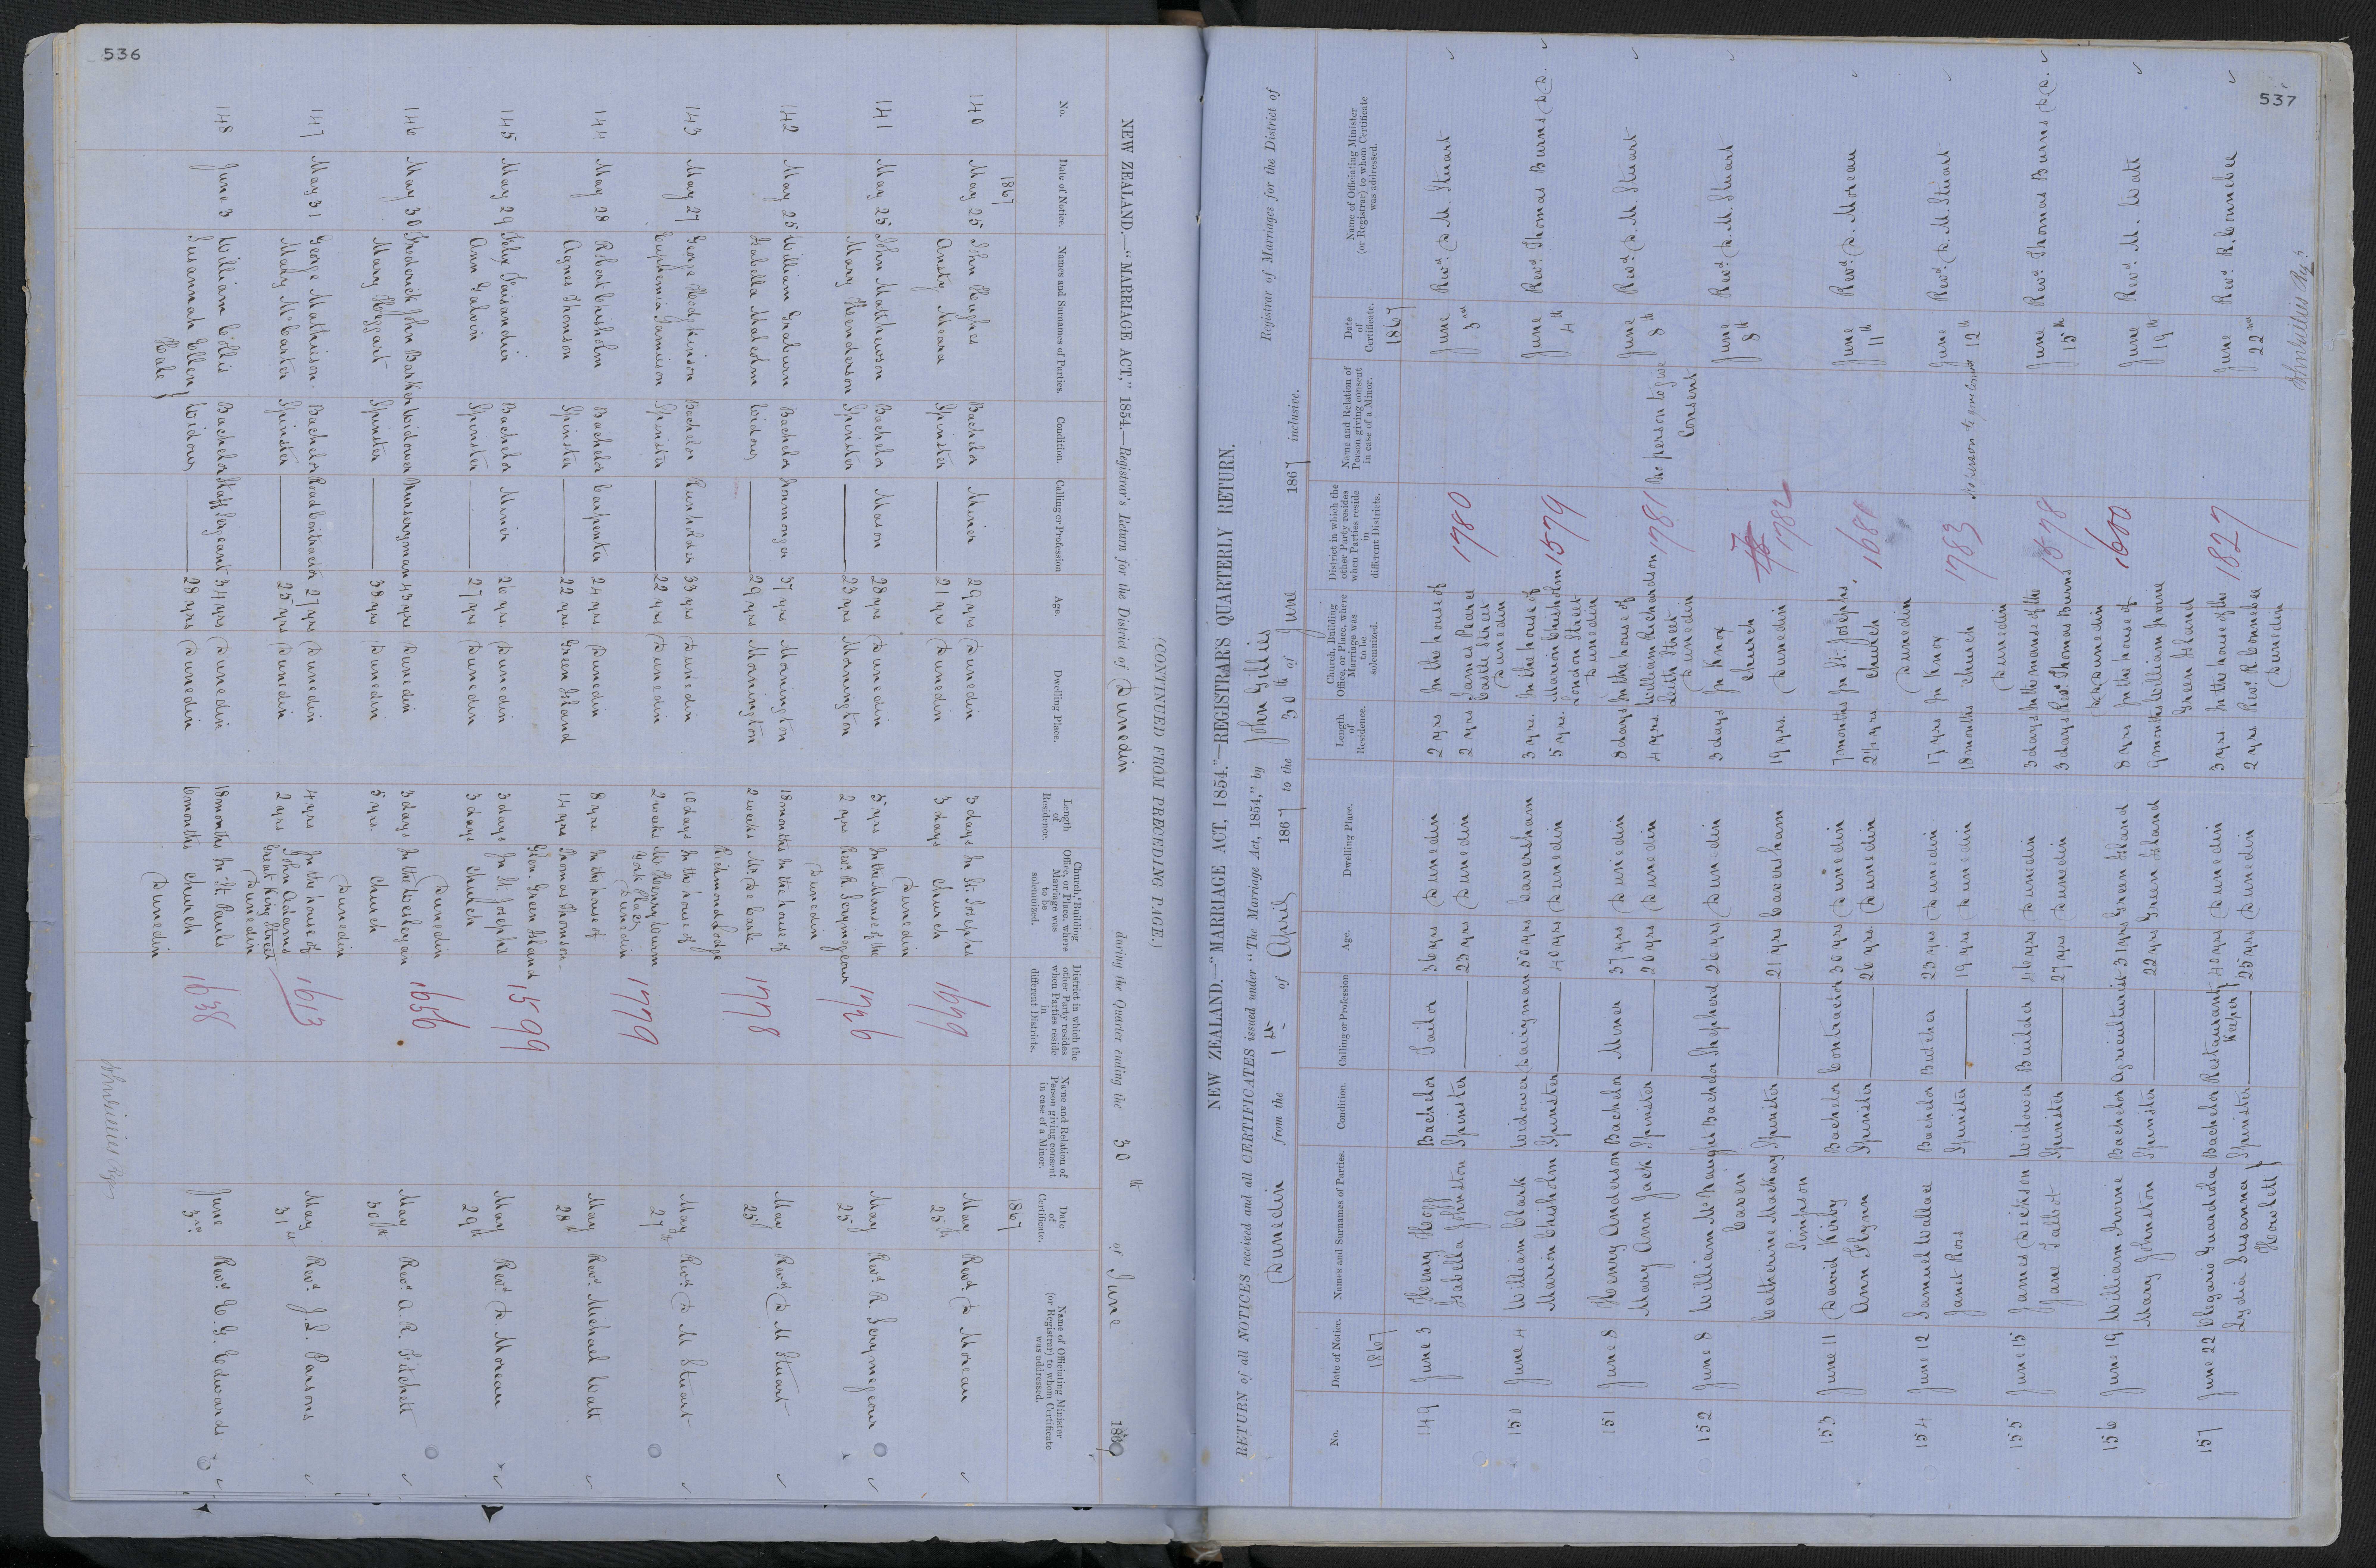 536
(CONTINUED FROM PRECEDING PAGE.)
NEW ZEALAND.—"MARRIAGE ACT," 1854.—Registrar's Return for the District of Dunedin during the Quarter ending the 30th of June 1867
No. Date of Notice. Names and Surnames of Parties. Condition. Calling or Profession Age. Dwelling Place. Length of Residence. Church, Building Office, or Place, where Marriage was to be solemnized. District in which the other Party resides when Parties reside in different Districts. Name and Relation of Person giving consent in case of a Minor. Date of Certificate. Name of Officiating Minister (or Registrar) to whom Certificate was addressed.
1867 1867
140 May 25 John Hughes Bachelor Miner 29 yrs Dunedin 3 days In St. Josephs 1699 May 25th Revd. D. Moreau
Ansty Meara Spinster 21 yrs Dunedin 3 days Church
Dunedin
141 May 25 John Matthewson Bachelor Mason 28 yrs Dunedin 5 yrs In the Manse of the 1726 May 25 Revd. R. Scrymegeour
Mary Henderson Spinster 23 yrs Mornington 2 yrs Revd. R. Scrymegeour
Dunedin
142 May 25 William Graburn Bachelor Ironmonger 37 yrs Mornington 18 months In the house of 1778 May 25 Revd. D M Stuart
Isabella Malcolm Widow 29 yrs Mornington 2 weeks Mr. De Carle
Richmond Lodge
143 May 27 George Hodgkinson Bachelor Runholder 33 yrs Dunedin 10 days In the house of 1779 May 27th Revd. D M Stuart
Euphemia Jamieson Spinster 22 yrs Dunedin 2 weeks Mr Henry Wunn
York Place
Dunedin
144 May 28 Robert Chisholm Bachelor Carpenter 24 yrs. Dunedin 8 yrs. In the house of 1599 May 28th Revd. Michael Watt
Agnes Thomson Spinster 22 yrs. Green Island 14 yrs Thomas Thomson
Glen. Green Island
145 May 29 Felix Faisandier Bachelor Miner 26 yrs. Dunedin 3 days In St. Josephs May 29th Revd. D. Moreau
Ann Galvin Spinster 27 yrs Dunedin 3 days Church
Dunedin
146 May 30 Frederick John Barker Widower Nurseryman 43 yrs Dunedin 3 days In the Wesleyan 1656 May 30th Revd. A. R. Fitchett
Mary Heggart Spinster 38 yrs Dunedin 5 yrs. Church
Dunedin
147 May 31 George Mathieson Bachelor Road Contractor 27 yrs Dunedin 4 yrs In the house of 1613 May 31st Revd. J. L. Parsons
Mary McCarter Spinster 25 yrs Dunedin 2 yrs John Adams
Great King Street
Dunedin
148 June 3 William Collis Bachelor Staff Sergeant 34 yrs Dunedin 18 months In St. Pauls 1638 June 3rd Revd. E. G. Edwards
Susannah Ellen Hale Widow 28 yrs Dunedin 6 months Church
Dunedin
537
NEW ZEALAND.—"MARRIAGE ACT, 1854."—REGISTRAR'S QUARTERLY RETURN.
RETURN of all NOTICES received and all CERTIFICATES issued under "The Marriage Act, 1854," by John Gillies Registrar of Marriages for the District of
Dunedin from the 1st of April 1867 to the 30th of June 1867 inclusive.
No. Date of Notice. Names and Surnames of Parties. Condition. Calling or Profession Age. Dwelling Place. Length of Residence. Church, Building Office, or Place, where Marriage was to be solemnized. District in which the other Party resides when Parties reside in different Districts. Name and Relation of Person giving consent in case of a Minor. Date of Certificate. Name of Officiating Minister (or Registrar) to whom Certificate was addressed.
1867 1867
149 June 3 Henry Hoff Bachelor Tailor 36 yrs Dunedin 2 yrs In the house of 1780 June 3rd Revd. D. M. Stuart
Isabella Johnston Spinster 23 yrs Dunedin 2 yrs James Pearce
Castle Street
Dunedin
150 June 4 William Clark Widower Dairyman 50 yrs Caversham 3 yrs. In the house of 1579 June 4th Revd. Thomas Burns D.D.
Marion Chisholm Spinster 40 yrs Dunedin 5 yrs. Marion Chisholm
London Street
Dunedin
151 June 8 Henry Anderson Bachelor Miner 37 yrs Dunedin 8 days In the house of 1781 No person to give Consent June 8th Revd. D. M. Stuart
Mary Ann Jack Spinster 20 yrs Dunedin 4 yrs. William Richardson
Leith Street
Dunedin
152 June 8 William McNaught Caven Bachelor Shepherd 26 yrs Dunedin 3 days In Knox 1782 June 8th Revd. D. M. Stuart
Catherine Mackay Simpson Spinster 21 yrs Caversham 19 yrs. Church
Dunedin
153 June 11 David Kirby Bachelor Contractor 30 yrs Dunedin 7 months In St. Josephs 1681 June 11th Revd. D. Moreau
Ann Flynn Spinster 26 yrs. Dunedin 2½ yrs. Church
Dunedin
154 June 12 Samuel Wallace Bachelor Butcher 23 yrs Dunedin 17 yrs In Knox 1783 No person to give Consent June 12th Revd. D. M. Stuart
Janet Ross Spinster 19 yrs Dunedin 18 months Church
Dunedin
155 June 15 James Dickson Widower Builder 46 yrs Dunedin 3 days In the manse of the 1578 June 15th Revd. Thomas Burns D.D.
Jane Talbot Spinster 27 yrs Dunedin 3 days Revd. Thomas Burns
D.D. Dunedin
156 June 19 William Irvine Bachelor Agriculturist 31 yrs Green Island 8 yrs In the house of 1600 June 19th Revd. M. Watt
Mary Johnston Spinster 22 yrs Green Island 9 months William Irvine
Green Island
157 June 22 Olegario Guardiola Bachelor Restaurant Keeper 40 yrs Dunedin 3 yrs. In the house of the 1827 June 22nd Revd. R. Connebee
Lydia Susanna Howlett Spinster 25 yrs Dunedin 2 yrs Revd. R. Connebee
Dunedin